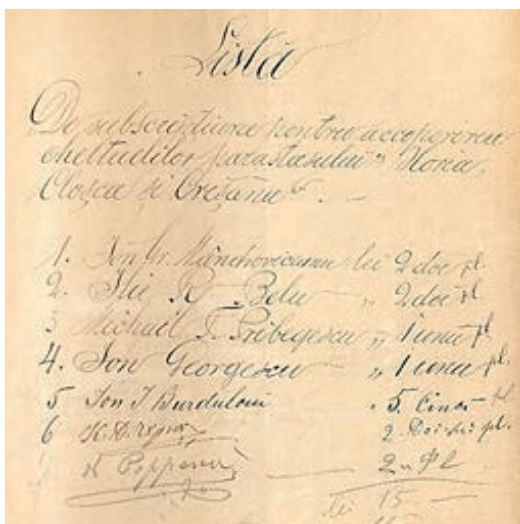 Lista
De subscripțiune pentru acoperirea
cheltuelilor parastasului "Horia,
Cloșca și Crețanu". —
1. Ion Gr. lei 2 doi pl.
2. Ilie R. Belu " 2 doi pl
3 Michail T. " 1 unu pl
4. Ion Georgescu " 1 unu pl.
5 Ion I Burduloiu " 5. Cinci pl
6 2. Doi lei pl.
2 " Pl
lei 15 —